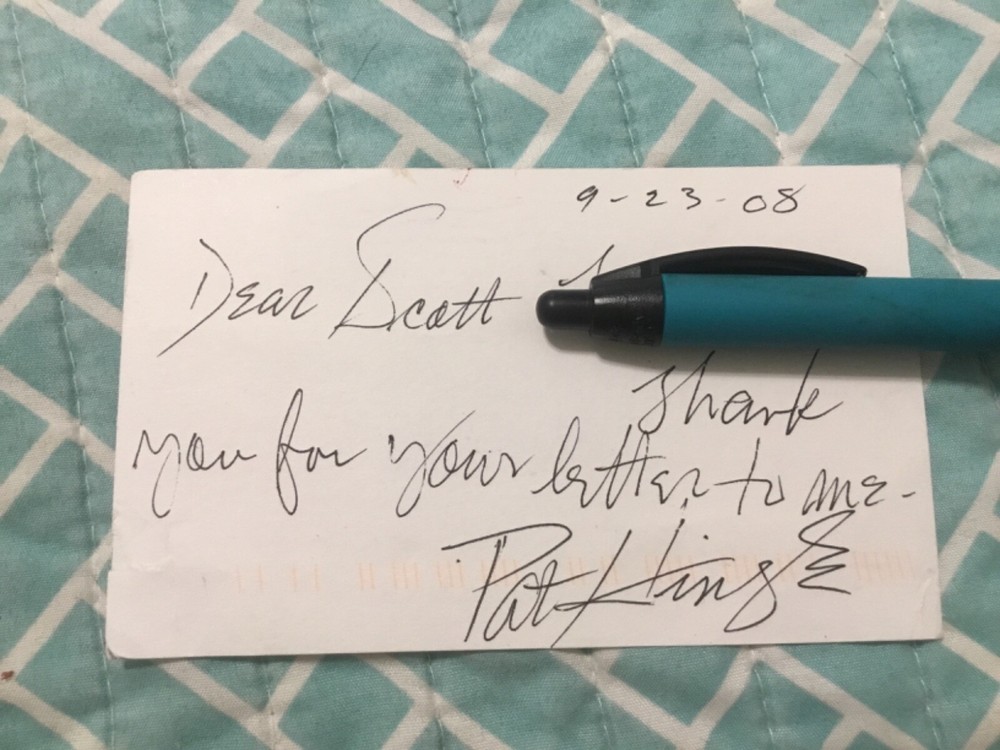 9-23-08
Dear Scott
Thank
you for your letter to me.
Pat Hingle